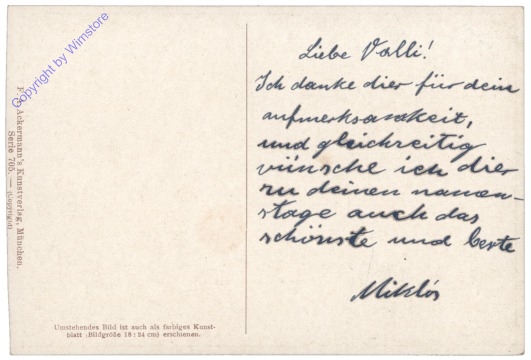 Copyright by Wimstore
F. A. Ackermann's Kunstverlag, München.
Serie 705. — (Copyright)
Liebe Valli!
Ich danke dier für dein
aufmerksamkeit,
und gleichzeitig
wünsche ich dier
zu deinen namen-
stage auch das
schönste und beste
Miklós
Umstehendes Bild ist auch als farbiges Kunst-
blatt (Bildgröße 18 : 24 cm) erschienen.